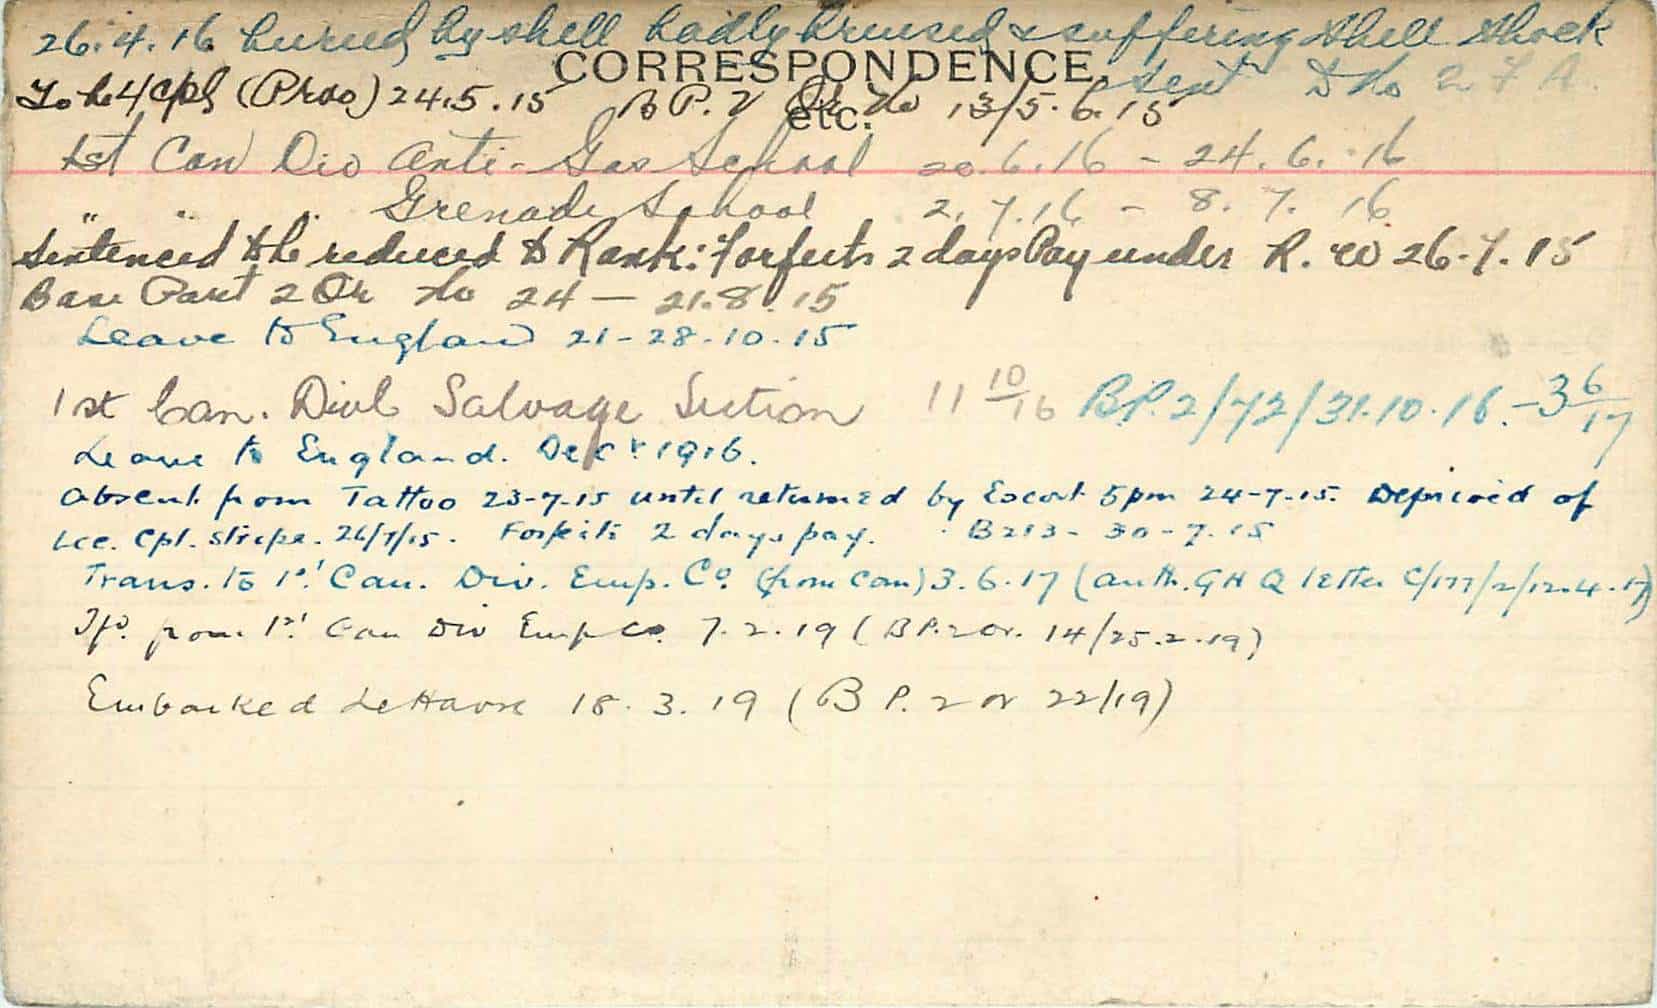 26.4.16 buried by shell badly bruised & suffering shell shock
CORRESPONDENCE, sent to No 2 F A.
To be L/Cpl (Prov) 24.5.15 B P. 2 Or No 13/5.6.15
etc.
1st Can Div Anti-Gas School 20.6.16 - 24.6.16
" " " Grenade School 2.7.16 - 8.7.16
Sentenced to be reduced to Rank: forfeits 2 days Pay under R.W 26.7.15
Base Part 2 Or No 24 - 21.8.15
Leave to England 21-28.10.15
1st Can. Divl Salvage Section 11 10/16 B.P.2/72/31.10.16. -3 6/17
Leave to England. Decr 1916.
Absent from Tattoo 23-7-15 until returned by Escort 5pm 24-7-15. Deprived of
Lce. Cpl. stripe. 26/7/15. Forfeits 2 days pay. B213- 30-7-15
Trans. to 1st Can. Div. Emp. Co. (from Cam) 3.6.17 (auth. GHQ letter C/177/2/12.4.17)
Tfd. from 1st Can Div Emp Co. 7.2.19 (B P.2 Or. 14/25.2.19)
Embarked LeHavre 18.3.19 (B P. 2 Or 22/19)